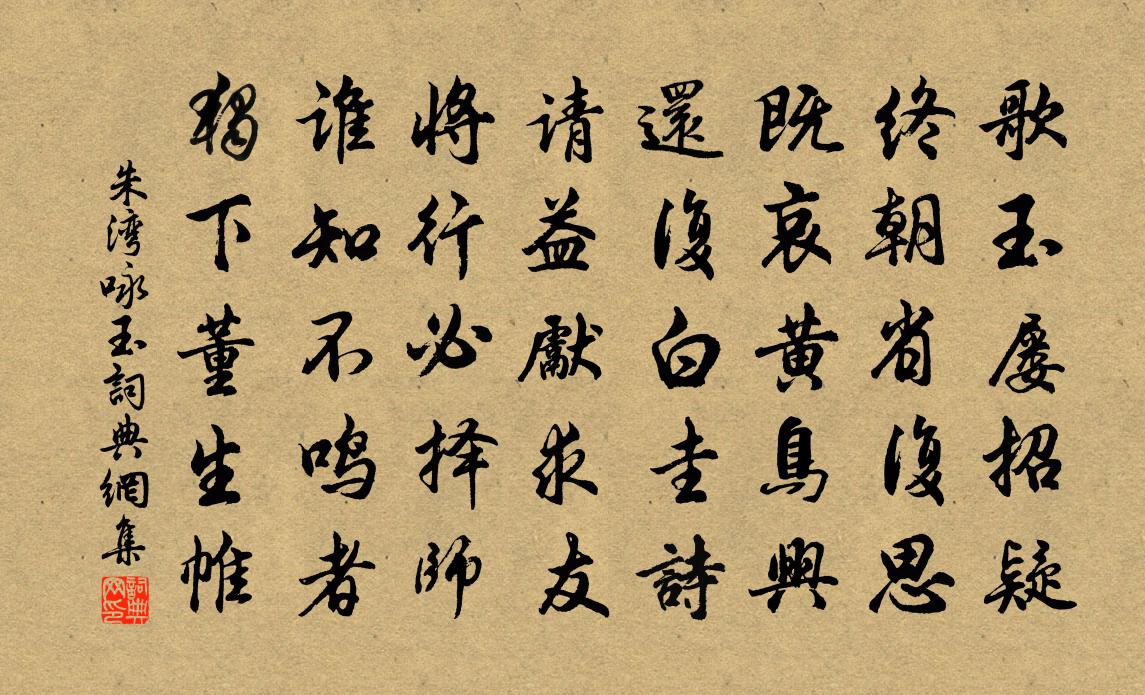 歌玉屡招疑
终朝省復思
既哀黄鳥興
還復白圭詩
请益獻求友
將行必择師
谁知不鸣者
獨下董生帷
朱湾咏玉詞典網集
詞典网印